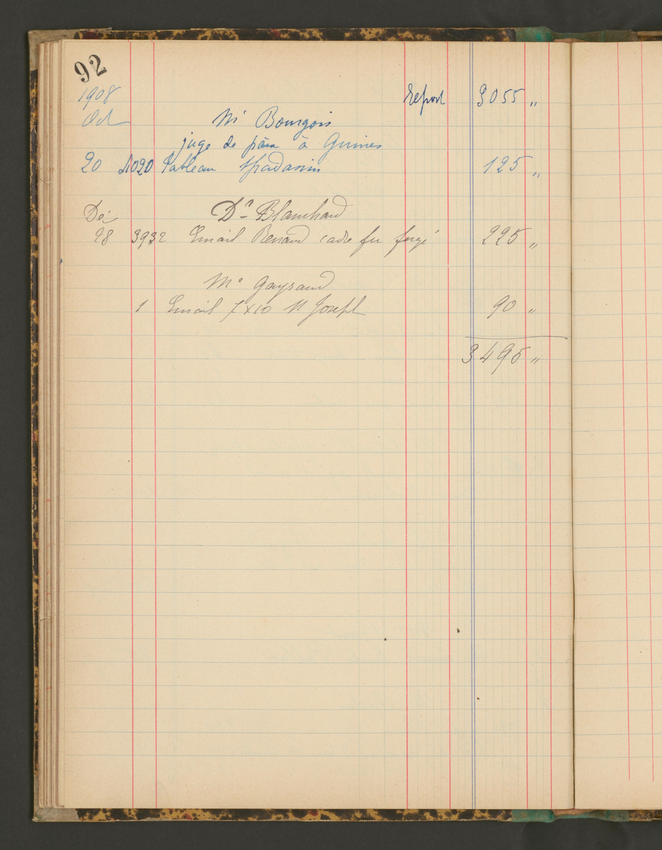 92
1908 Report 3055 "
Oct Mr Bourgois
juge de paix à Guines
20 4020 Tableau Spadassin 125 "
Déc Dr Blanchard
28 3932 Email Renard cadre fer forgé 225 "
Mr
1 Email 7x10 St Joseph 90 "
3495 "